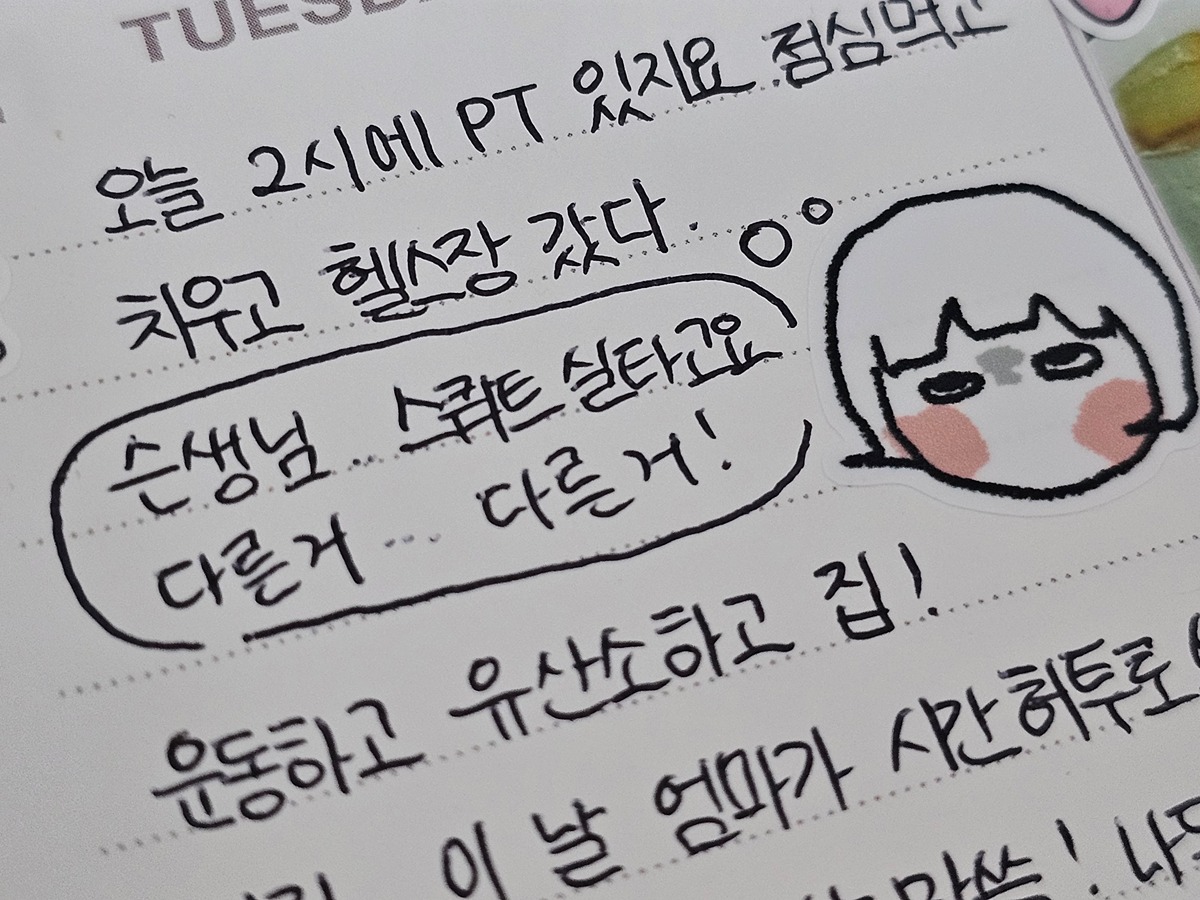 TUESD
오늘 2시에 PT 있지요 점심먹고
치우고 헬스장 갔다.
슨생님.. 스쿼트 실타고요
다른거... 다른거!
운동하고 유산소하고 집!
이 날 엄마가 시간 허투로
말씀! 나도